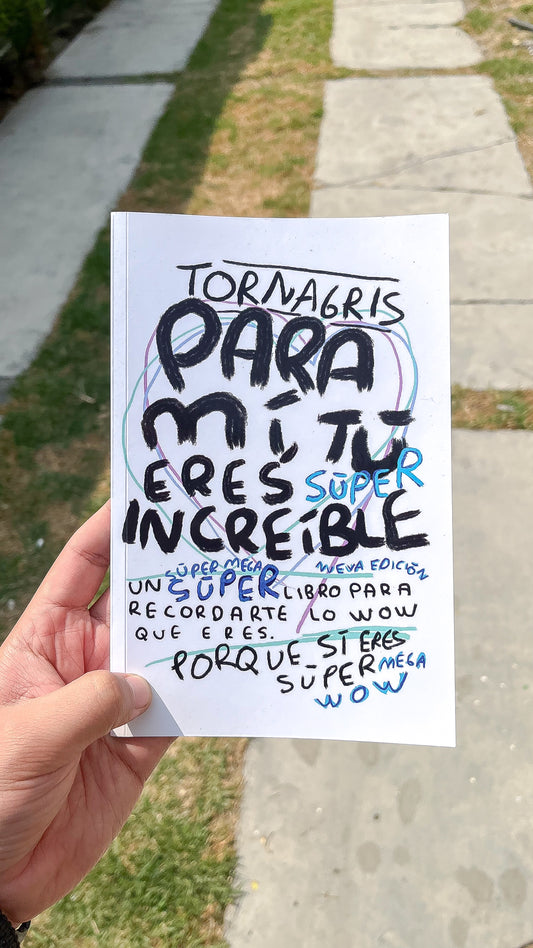 TORNAGRIS
PARA
MÍ TŪ
ERES SŪPER
INCREÍBLE
SŪPER MEGA NUEVA EDICIÓN
UN SŪPER LIBRO PARA
RECORDARTE LO WOW
QUE ERES.
PORQUE SÍ ERES
SŪPER MEGA
WOW